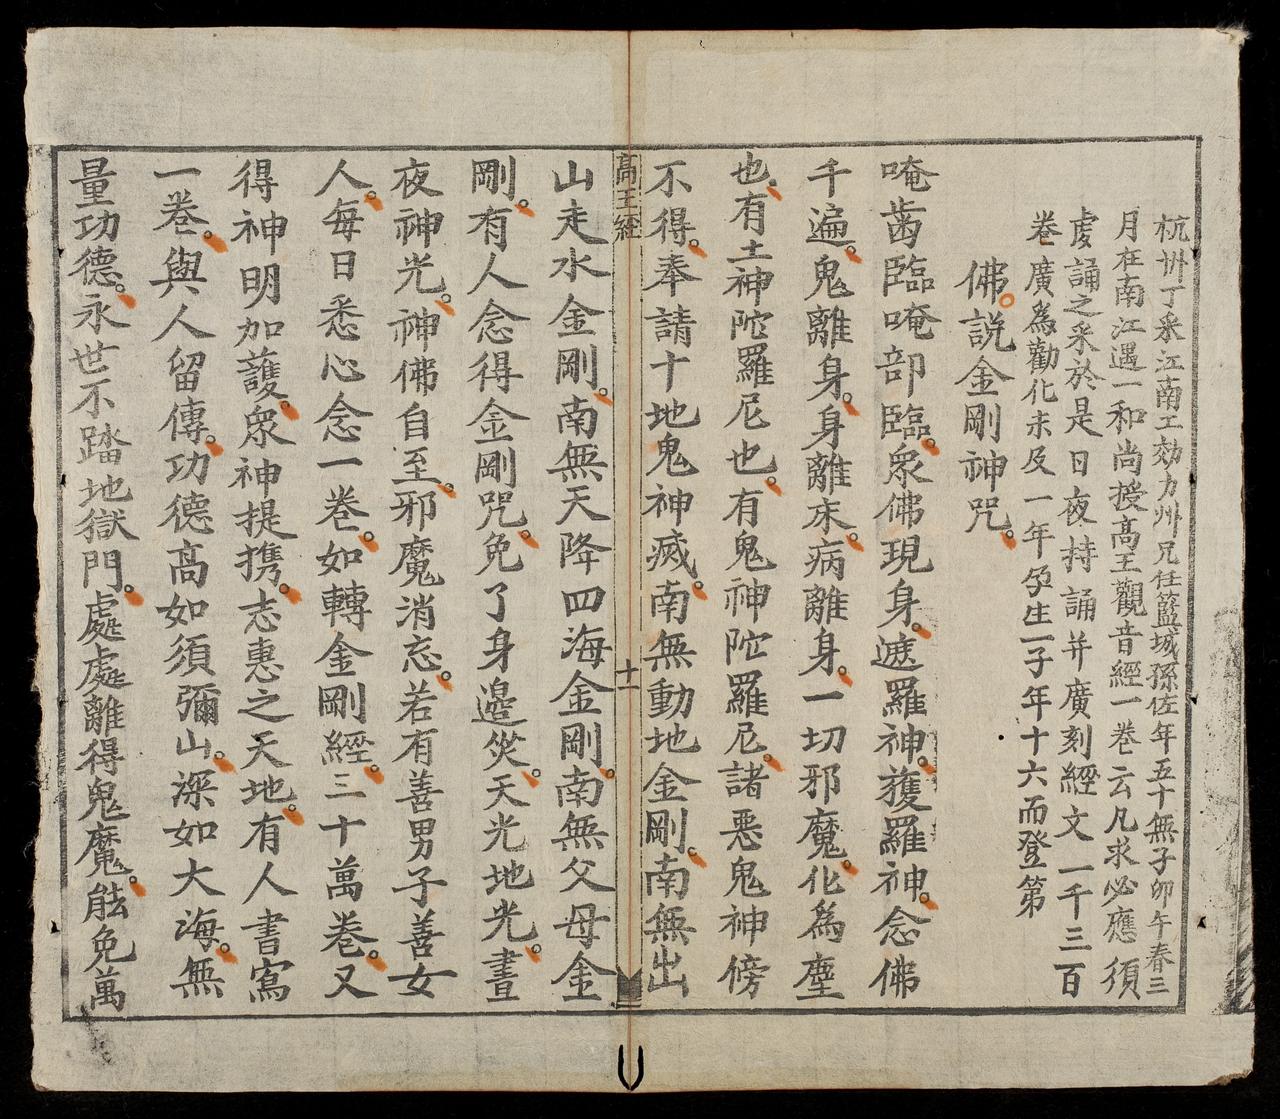 杭州丁釆江南工効力州兄任籃城孫佐年五十無子卯午春三
月在南江遇一和尚授高王觀音經一卷云凡求必應須
虔誦之釆於是日夜持誦并廣刻經文一千三百
卷廣為勸化未及一年孕生一子年十六而登第
佛。說金剛神咒。
唵齒臨唵部臨。衆佛現身。遮羅神。護羅神。念佛
千遍。鬼離身。身離床。病離身。一切邪魔。化為塵
也、有土神陀羅尼也。有鬼神陀羅尼。諸恶鬼神傍
不得。奉請十地鬼神滅。南無動地金剛。南無出
高王經
十一
山走水金剛。南無天降四海金剛。南無父母金
剛。有人念得金剛咒。免了身邉災。天光地光。晝
夜神光。神佛自至。邪魔消忘。若有善男子善女
人。每日悉心念一卷。如轉金剛經。三十萬卷。又
得神明加護。衆神提携。志惠之天地。有人書寫
一卷。與人留傳。功德高如須彌山。深如大海。無
量功德。永世不踏地獄門。處處離得鬼魔。能免萬